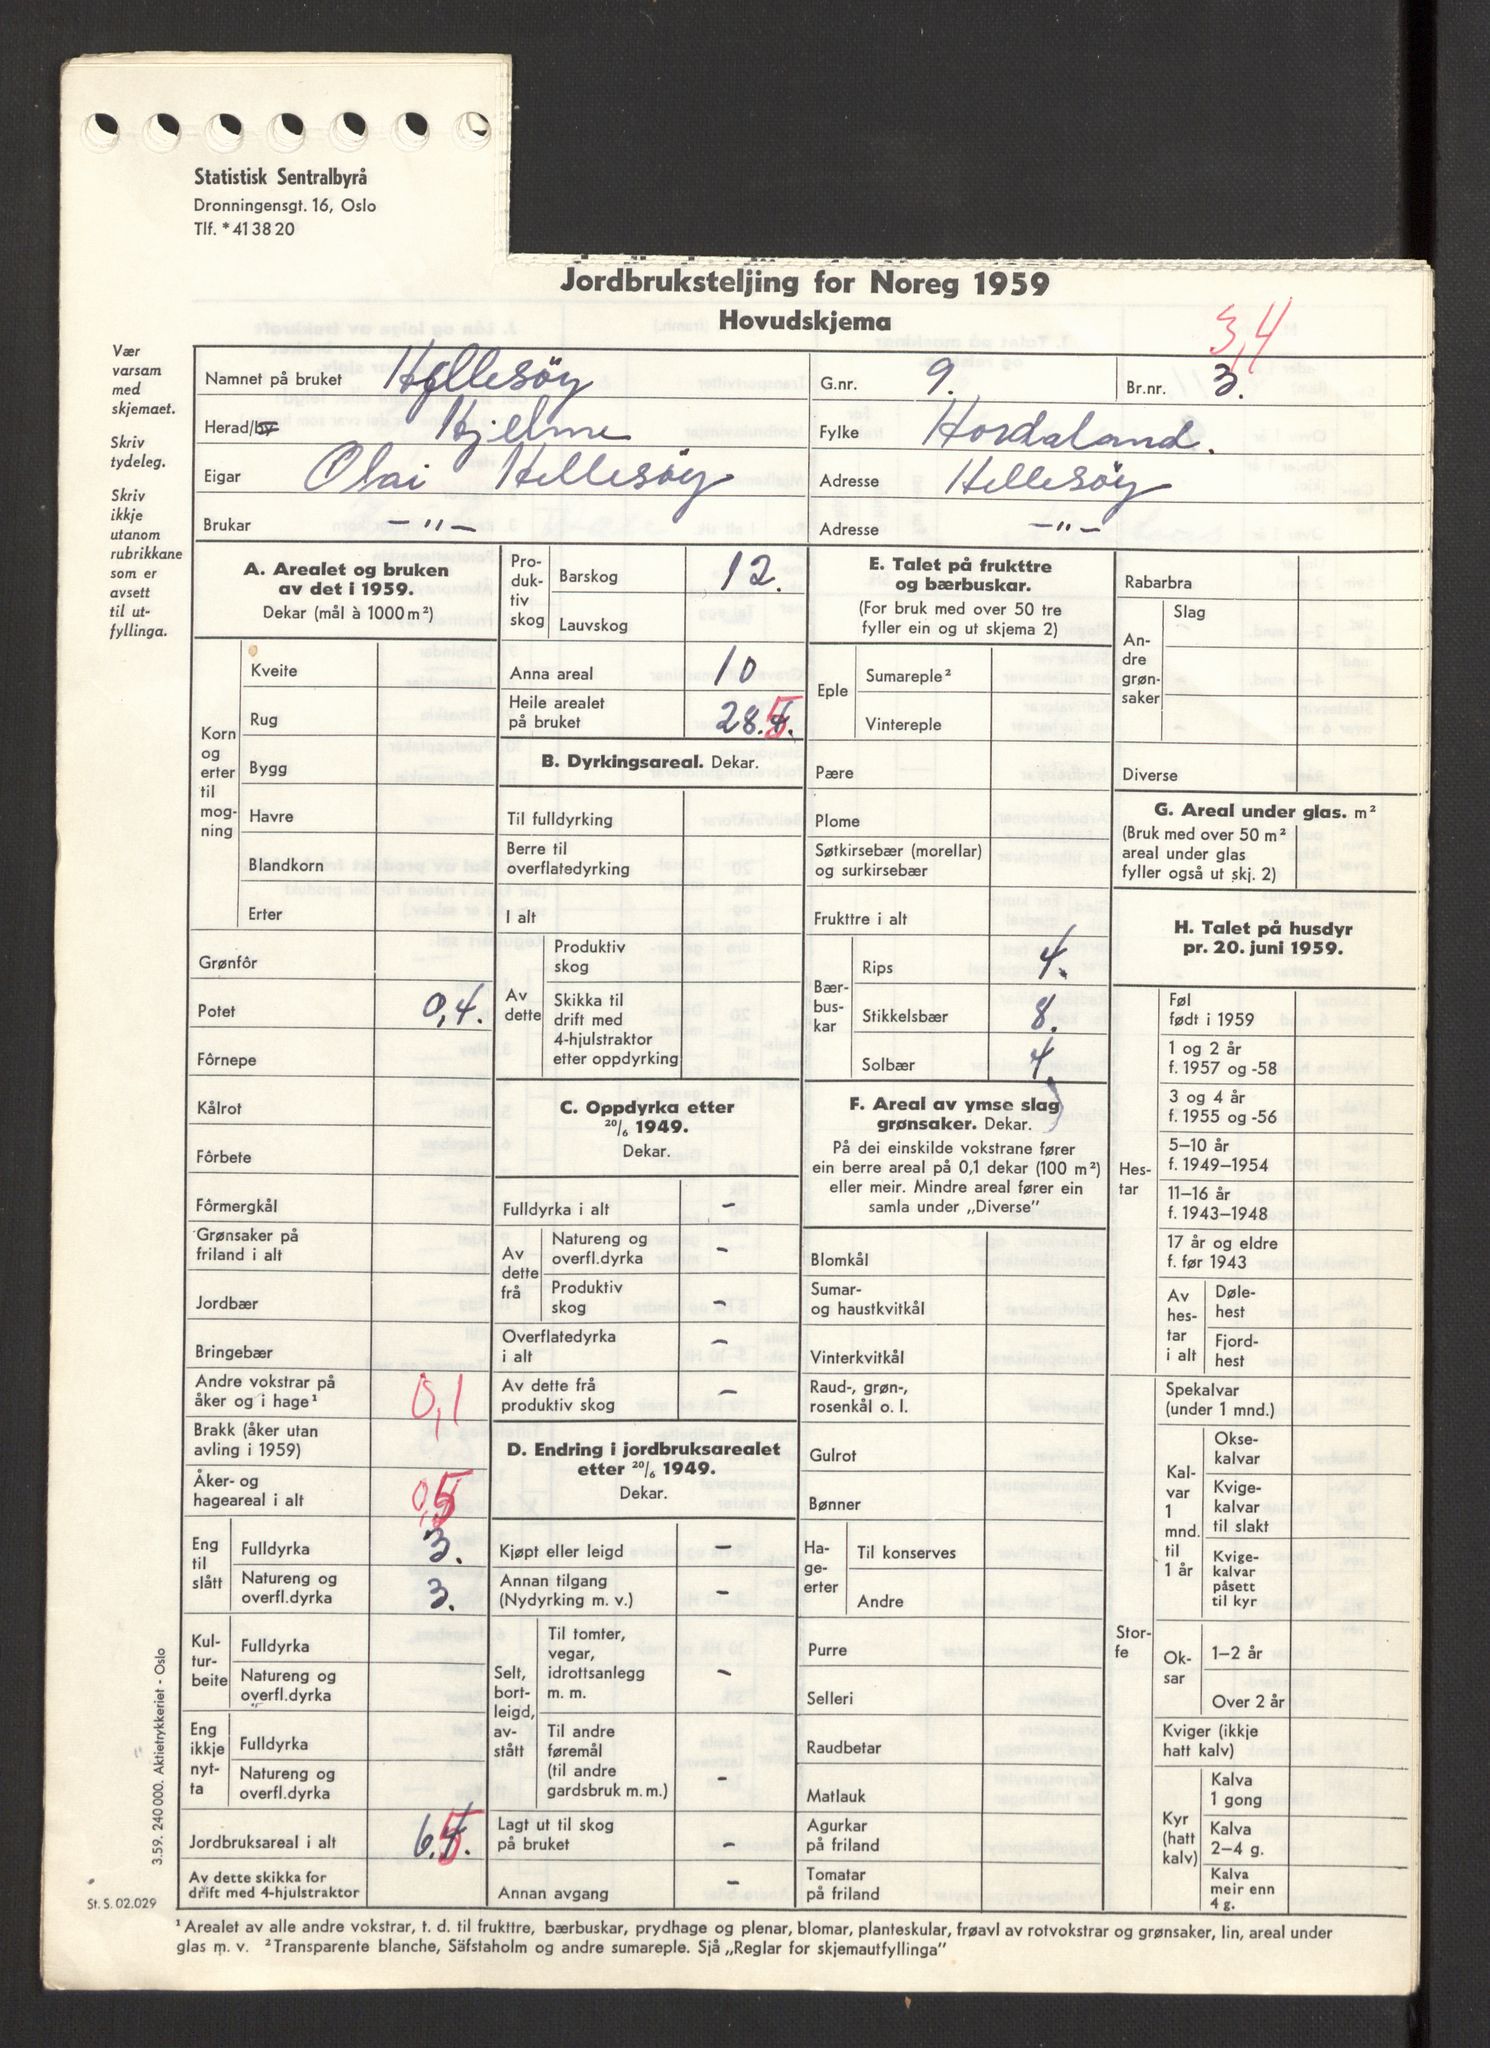 Statistisk Sentralbyrå
Dronningensgt. 16, Oslo
Tlf. *41 38 20
Jordbruksteljing for Noreg 1959
Hovudskjema
3,4
Vær
varsam
med
skjemaet.
Skriv
tydeleg.
Skriv
ikkje
utanom
rubrikkane
som er
avsett
til ut-
fyllinga.
Namnet på bruket Hellesöy G.nr. 9. Br.nr. 3.
Herad/by Hjelme Fylke Hordaland.
Eigar Olai Hellesöy Adresse Hellesöy
Brukar —"— Adresse —"—
A. Arealet og bruken
av det i 1959.
Dekar (mål à 1000 m²)
Korn
og
erter
til
mog-
ning
Kveite
Rug
Bygg
Havre
Blandkorn
Erter
Grønfôr
Potet 0,4.
Fôrnepe
Kålrot
Fôrbete
Fôrmergkål
Grønsaker på
friland i alt
Jordbær
Bringebær
Andre vokstrar på
åker og i hage¹ 0,1
Brakk (åker utan
avling i 1959)
Åker- og
hageareal i alt 0,5
Eng
til
slått
Fulldyrka 3.
Natureng og
overfl.dyrka 3.
Kul-
tur-
beite
Fulldyrka
Natureng og
overfl.dyrka
Eng
ikkje
nyt-
ta
Fulldyrka
Natureng og
overfl.dyrka
Jordbruksareal i alt 6.5
Av dette skikka for
drift med 4-hjulstraktor
Pro-
duk-
tiv
skog
Barskog 12.
Lauvskog
Anna areal 10
Heile arealet
på bruket 28.5
B. Dyrkingsareal. Dekar.
Til fulldyrking
Berre til
overflatedyrking
I alt
Av
dette
Produktiv
skog
Skikka til
drift med
4-hjulstraktor
etter oppdyrking
C. Oppdyrka etter
20/6 1949.
Dekar.
Fulldyrka i alt –
Av
dette
frå
Natureng og
overfl.dyrka –
Produktiv
skog –
Overflatedyrka
i alt –
Av dette frå
produktiv skog –
D. Endring i jordbruksarealet
etter 20/6 1949.
Dekar.
Kjøpt eller leigd –
Annan tilgang
(Nydyrking m. v.) –
Selt,
bort-
leigd,
av-
stått
Til tomter,
vegar,
idrottsanlegg
m. m. –
Til andre
føremål
(til andre
gardsbruk m. m.) –
Lagt ut til skog
på bruket –
Annan avgang –
E. Talet på frukttre
og bærbuskar.
(For bruk med over 50 tre
fyller ein og ut skjema 2)
Eple
Sumareple²
Vintereple
Pære
Plome
Søtkirsebær (morellar)
og surkirsebær
Frukttre i alt
Bær-
bus-
kar
Rips 4.
Stikkelsbær 8.
Solbær 4.
F. Areal av ymse slag
grønsaker. Dekar.
På dei einskilde vokstrane fører
ein berre areal på 0,1 dekar (100 m²)
eller meir. Mindre areal fører ein
samla under „Diverse”
Blomkål
Sumar-
og haustkvitkål
Vinterkvitkål
Raud-, grøn-,
rosenkål o. l.
Gulrot
Bønner
Ha-
ge-
erter
Til konserves
Andre
Purre
Selleri
Raudbetar
Matlauk
Agurkar
på friland
Tomatar
på friland
Rabarbra
An-
dre
grøn-
saker
Slag
Diverse
G. Areal under glas. m²
(Bruk med over 50 m²
areal under glas
fyller også ut skj. 2)
H. Talet på husdyr
pr. 20. juni 1959.
Hes-
tar
Føl
født i 1959
1 og 2 år
f. 1957 og -58
3 og 4 år
f. 1955 og -56
5–10 år
f. 1949–1954
11–16 år
f. 1943–1948
17 år og eldre
f. før 1943
Av
hes-
tar
i alt
Døle-
hest
Fjord-
hest
Stor-
fe
Spekalvar
(under 1 mnd.)
Kal-
var
1
mnd.
til
1 år
Okse-
kalvar
Kvige-
kalvar
til slakt
Kvige-
kalvar
påsett
til kyr
Ok-
sar
1–2 år
Over 2 år
Kviger (ikkje
hatt kalv)
Kyr
(hatt
kalv)
Kalva
1 gong
Kalva
2–4 g.
Kalva
meir enn
4 g.
3.59. 240 000. Aktietrykkeriet - Oslo
St. S. 02.029
¹ Arealet av alle andre vokstrar, t. d. til frukttre, bærbuskar, prydhage og plenar, blomar, planteskular, frøavl av rotvokstrar og grønsaker, lin, areal under
glas m. v. ² Transparente blanche, Säfstaholm og andre sumareple. Sjå „Reglar for skjemautfyllinga”